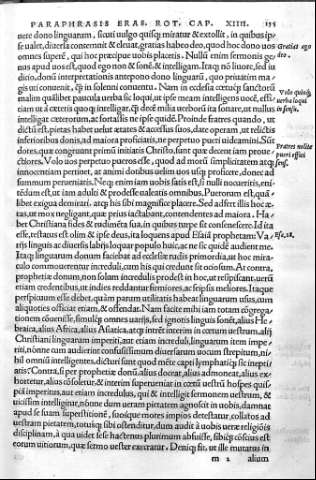 PARAPHRASIS ERAS. ROT. CAP. XIIII. 135
nere dono linguarum, sicuti vulgo quisq; miratur & extollit, in quibus ip-
se ualet, diuersa contemnit & eleuat, gratias habeo deo, quod hoc dono uos Gratias ago
omnes superē, qui hoc præcipue uobis placetis. Nullū enim sermonis ge- deo.
nus apud uos est, quod ego non & sonē & intelligam. Itaq; nō liuore, sed iu
dicio, donū interpretationis antepono dono linguarū, quo priuatim ma-
gis uti conuenit, q̄ in solenni conuentu. Nam in ecclesia cœtuq; sanctorū
malim quāllibet paucula uerba sic loqui, ut ipse meam intelligens uocē, effi- Volo quinq;
ciam ut & cæteris quoq; intelligar, q̄ decē milia uerborū ita sonare, ut nullus uerba loqui
intelligat cæterorum, ac fortassis ne ipse quidē. Proinde fratres quando, ut in sensu.
dictū est, pietas habet uelut ætates & accessus suos, date operam, ut relictis
inferioribus donis, ad maiora proficiatis, ne perpetuo pueri uideamini. Sūt
dotes, quæ congruunt primū initiatis Christo, sunt quæ decent iam proue-
ctiores. Volo uos perpetuo pueros esse, quod ad morū simplicitatem atq; Fratres nolite
innocentiam pertinet, at animi dotibus uelim uos usq; proficere, donec ad pueri effici
summum perueniatis. Neq; enim iam uobis satis est, si nulli nocueritis, eni- sensi.
tendum est, ut iam adulti & prodesse ualeatis omnibus. Puerorum est, quā-
libet exigua demirari, atq; his sibi magnifice placere. Sed adsert illis hoc æ-
tas, ut mox negligant, quæ prius iactabant, contendentes ad maiora. Ha-
bet Christiana fides & rudimēta sua, in quibus turpe sit consenescere. Id ita
esse, testatus est olim & ipse deus, ita loquens apud Esaiā prophetam: Va- Esa. 28.
rijs linguis ac diuersis labijs loquar populo huic, ac ne sic quidē audient me.
Itaq; linguarum donum faciebat ad ecclesiæ rudis primordia, ut hoc mira-
culo commouerentur increduli, nam his qui credunt sit ociosum. At contra,
prophetiæ donum, non solum incredulis prodest in hoc, ut resipiscant, uerū
etiam credentibus, ut indies reddantur firmiores, ac seipsis meliores. Itaque
perspicuum esse debet, quàm parum utilitatis habeat linguarum usus, cum
aliquoties officiat etiam, & offendat. Nam facite mihi iam totam cōgrega-
tionem coeuntē, simulq́; omnes uarijs, sed ignotis linguis sonēt, alius He-
braica, alius Africa, alius Asiatica, atq; intrēt interim in cœtum uestrum, alij
Christiani linguarum imperiti, aut etiam increduli, linguarum item impe-
riti, nōnne cum audierint confusissimum diuersarum uocum strepitum, ni-
hil omniū intelligentes, dicturi sunt quod mēte capti lymphatiq; sic insania-
tis? Contra, si per prophetiæ donū alius doceat, alius admoneat, alius ex-
hortetur, alius cōsoletur, & interim superueniat in cœtū uestrū hospes quis-
piā imperitus, aut etiam incredulus, qui & intelligit sermonem uestrum, &
uicissim intelligitur, nōnne dum ueram pietatem agnoscit in uobis, damnat
apud se suam superstitionē, suosque mores impios detestatur, collatos ad
uestram pietatem, totusq; sibi ostenditur, dum audit à uobis ueræ religiōis
disciplinam, à qua uidet sese hactenus plurimum abfuisse, sibiq; cōscius est
eorum uitiorum, quæ sermo uester execratur. Deniq; fit, ut ille mutuum in
m 2 alium